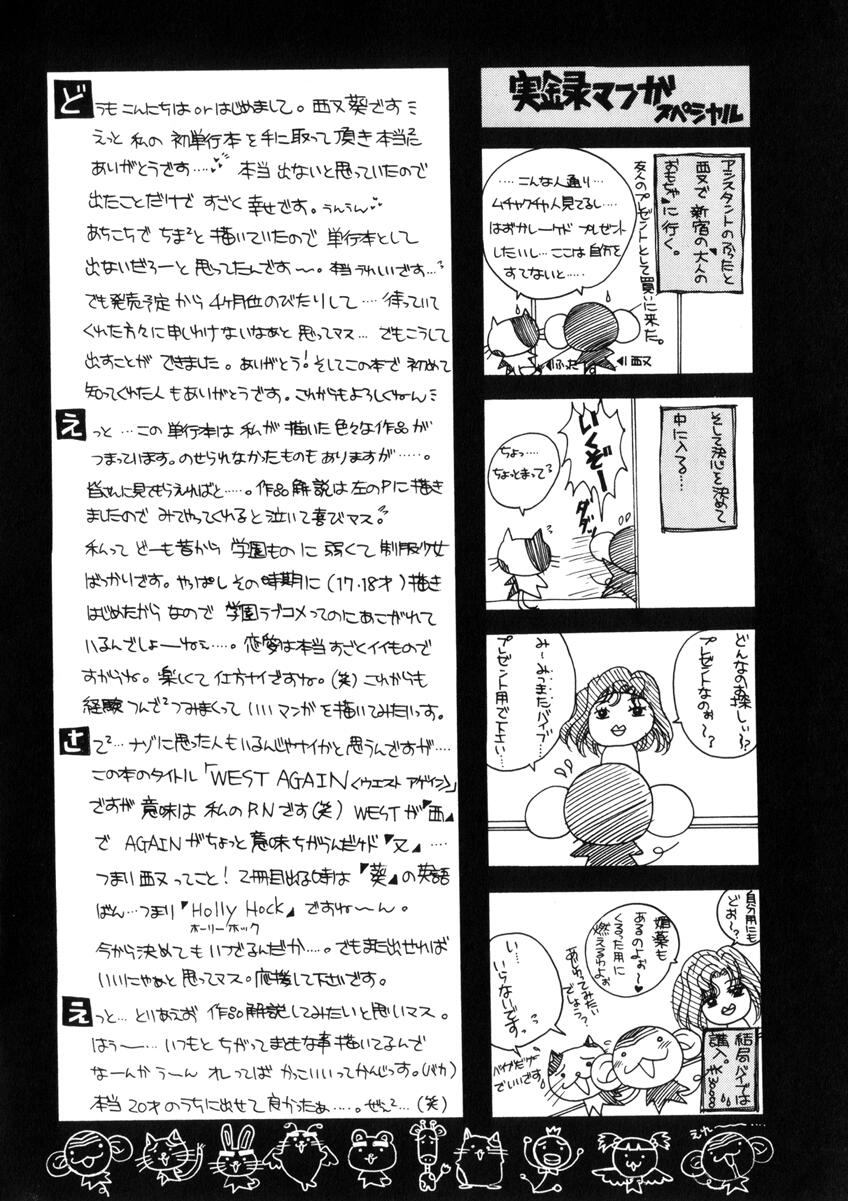 実録マンガ
スペシャル
アシスタントのふったと
西又で新宿の大人の
おもちゃに行く。
友人のプレゼントとして買いに来た。
‥‥こんな人通り‥‥
ムチャクチャ人見てるし‥‥
はずかしーケド プレゼント
したいし‥‥ここは自分を
すてないと‥‥
ふった
西又
そして決心を決めて
中に入る‥‥
いくぞー
ダダッ
ちょっ‥‥
ちょっとまって?
どんなのお探しぃ〜?
プレゼントなのぉ〜?
み〜みっきたバイブ‥‥
プレゼント用で下さい‥‥
自分用にも
どぉ〜?
媚薬も
あるのよぉ〜♥
くるった用に
燃えるわよぉ
い‥‥
いらないですっ
あじわってみたい
でしょう??
バイブだけで
いいです
結局バイブは
購入。¥30000
どうもこんにちは orはじめまして。西又葵です
えっと 私の 初単行本を手に取って頂き本当に
ありがとうです‥‥ 本当 出ないと思っていたので
出たことだけで すごく 幸せです。うんうん
あちこちで ちま²と描いていたので 単行本として
出ないだろーと思ってたんです〜。本当うれしいです‥‥?
でも発売予定から4ヶ月位のびたりして‥‥待っていて
くれた方々に申しわけないなぁと思ってマス‥‥でもこうして
出すことが できました。ありがとう!そしてこの本で初めて
知ってくれた人もありがとうです。これからもよろしくねん
えっと‥‥この単行本は 私が描いた色々な作品が
つまっています。のせられなかったものもありますが‥‥‥。
皆さんに見てもらえればと‥‥‥。作品解説は左のPに描き
ましたので みてやってくれると泣いて喜びマス。
私って どーも昔から 学園ものに 弱くて 制服少女
ばっかりです。やっぱし その時期に(17.18才)描き
はじめたから なので 学園ラブコメってのにあこがれて
いるんでしょーねぇ‥‥。恋愛は本当すごくイイもので
すからね。楽しくて仕方ナイですね。(笑)これからも
経験つんで²つみまくって いいマンガを描いてみたいっす。
さて²‥‥ナゾに思った人もいるんじゃナイかと思うんですが‥‥
この本のタイトル「WEST AGAIN<ウエスト アゲイン>」
ですが意味は 私のP.Nです(笑) WESTが『西』
で AGAINがちょっと意味ちがうんだケド『又』‥‥
つまり西又ってこと! 2冊目出る時は『葵』の英語
ばん‥‥つまり『Holly Hock』ですね〜ん。
ホーリーホック
今から決めても いつでるんだか‥‥。でもまた出せれば
いいにゃぁと思ってマス。応援して下さいです。
えっと‥‥ とりあえず 作品解説してみたいと思いマス。
はぅ〜‥‥いつもとちがってまともな事描いてるんで
なーんか うーん れってば かっこいいってかんじっす。(バカ)
本当 20才のうちに出せて良かったぁ‥‥。ぜえ²‥‥(笑)
えへ〜‥‥